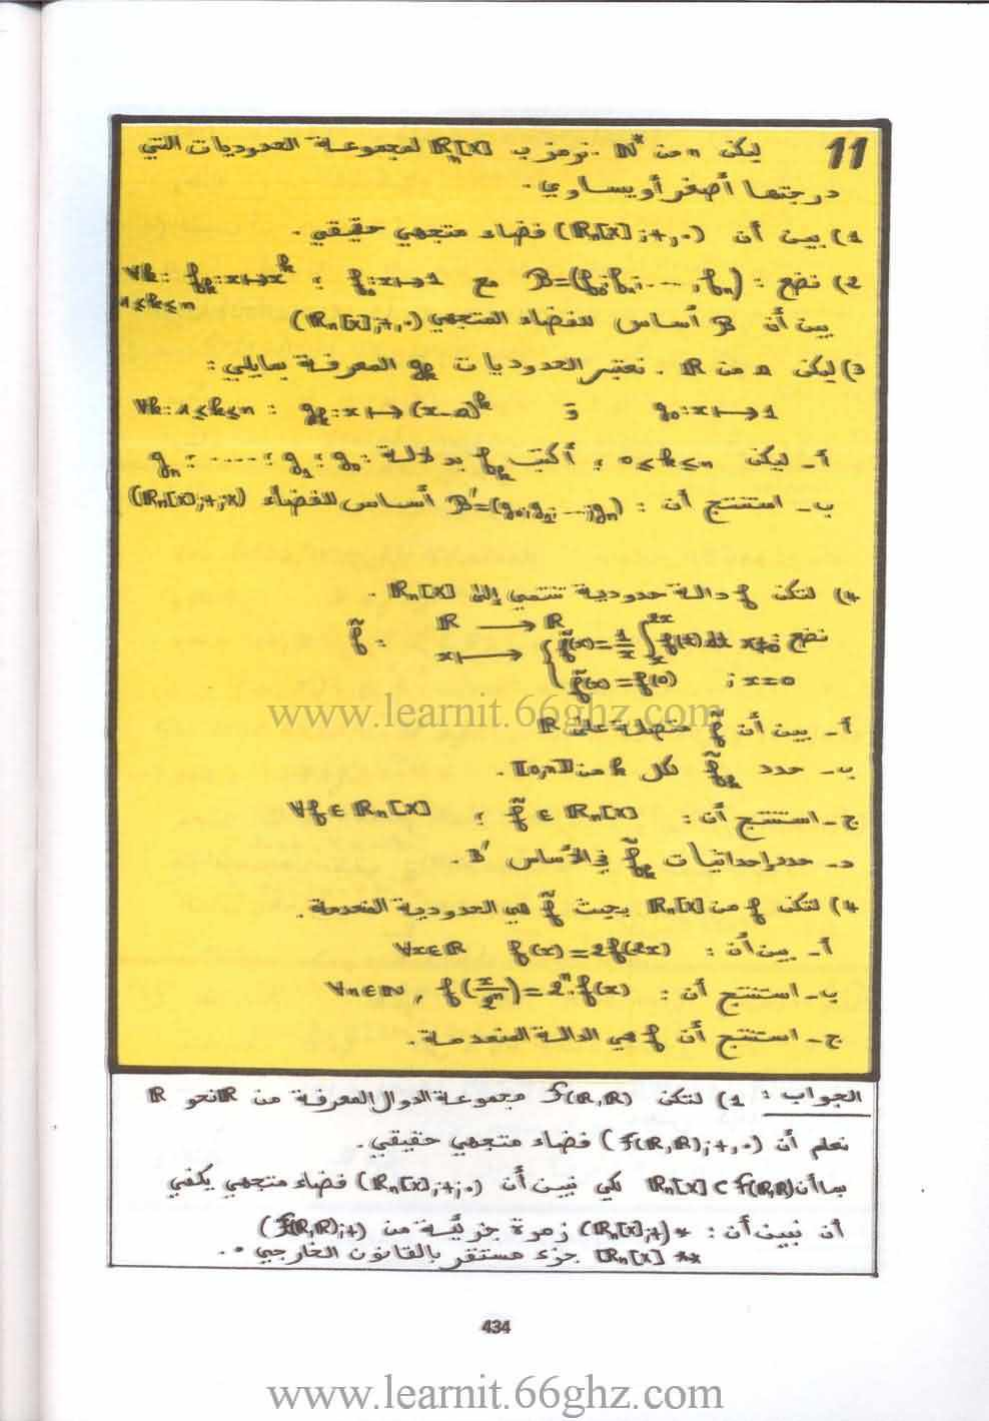 11 ليكن n من ℕ* . نرمز ب ℝₙ[X] لمجموعة الحدوديات التي
درجتها أصغر أو يساوي .
1) بين أن (ℝₙ[X];+,.) فضاء متجهي حقيقي .
2) نضع : B=(f₀;f₁;...;fₙ) مع f₀:x↦1 ; ∀k: fₖ:x↦xᵏ
1≤k≤n
بين أن B أساس للفضاء المتجهي (ℝₙ[X];+,.)
3) ليكن a من ℝ . نعتبر الحدوديات gₖ المعرفة بمايلي :
g₀:x↦1 و ∀k:1≤k≤n : gₖ:x↦(x-a)ᵏ
أ- ليكن 0≤k≤n ; أكتب fₖ بدلالة : g₀ ; g₁ ; ..... ; gₙ
ب- استنتج أن : B'=(g₀;g₁;...;gₙ) أساس للفضاء (ℝₙ[X];+;x)
4) لتكن f دالة حدودية تنتمي إلى ℝₙ[X] .
نضع : f̃ : ℝ ⟶ ℝ
x ⟼ { f̃(x)=1/x ∫ₓ²ˣ f(t)dt x≠0
f̃(x)=f(0) ; x=0
www.learnit.66ghz.com
أ- بين أن f̃ متصلة على ℝ
ب- حدد f̃ₖ لكل k من [[0,n]] .
ج- استنتج أن : ∀f∈ℝₙ[X] ; f̃ ∈ ℝₙ[X]
د- حدد إحداثيات f̃ₖ في الأساس B' .
4) لتكن f من ℝₙ[X] بحيث f̃ هي الحدودية المنعدمة .
أ- بين أن : ∀x∈ℝ f(x)=2f(2x)
ب- استنتج أن : ∀n∈ℕ , f(x/2ⁿ)=2ⁿ.f(x)
ج- استنتج أن f هي الدالة المنعدمة .
الجواب : 1) لتكن F(ℝ,ℝ) مجموعة الدوال المعرفة من ℝ نحو ℝ
نعلم أن (F(ℝ,ℝ);+,.) فضاء متجهي حقيقي .
بما أن ℝₙ[X]⊂F(ℝ,ℝ) لكي نبين أن (ℝₙ[X];+;.) فضاء متجهي يكفي
أن نبين أن : * (ℝₙ[X];+) زمرة جزئية من (F(ℝ,ℝ);+)
** ℝₙ[X] جزء مستقر بالقانون الخارجي • .
434
www.learnit.66ghz.com